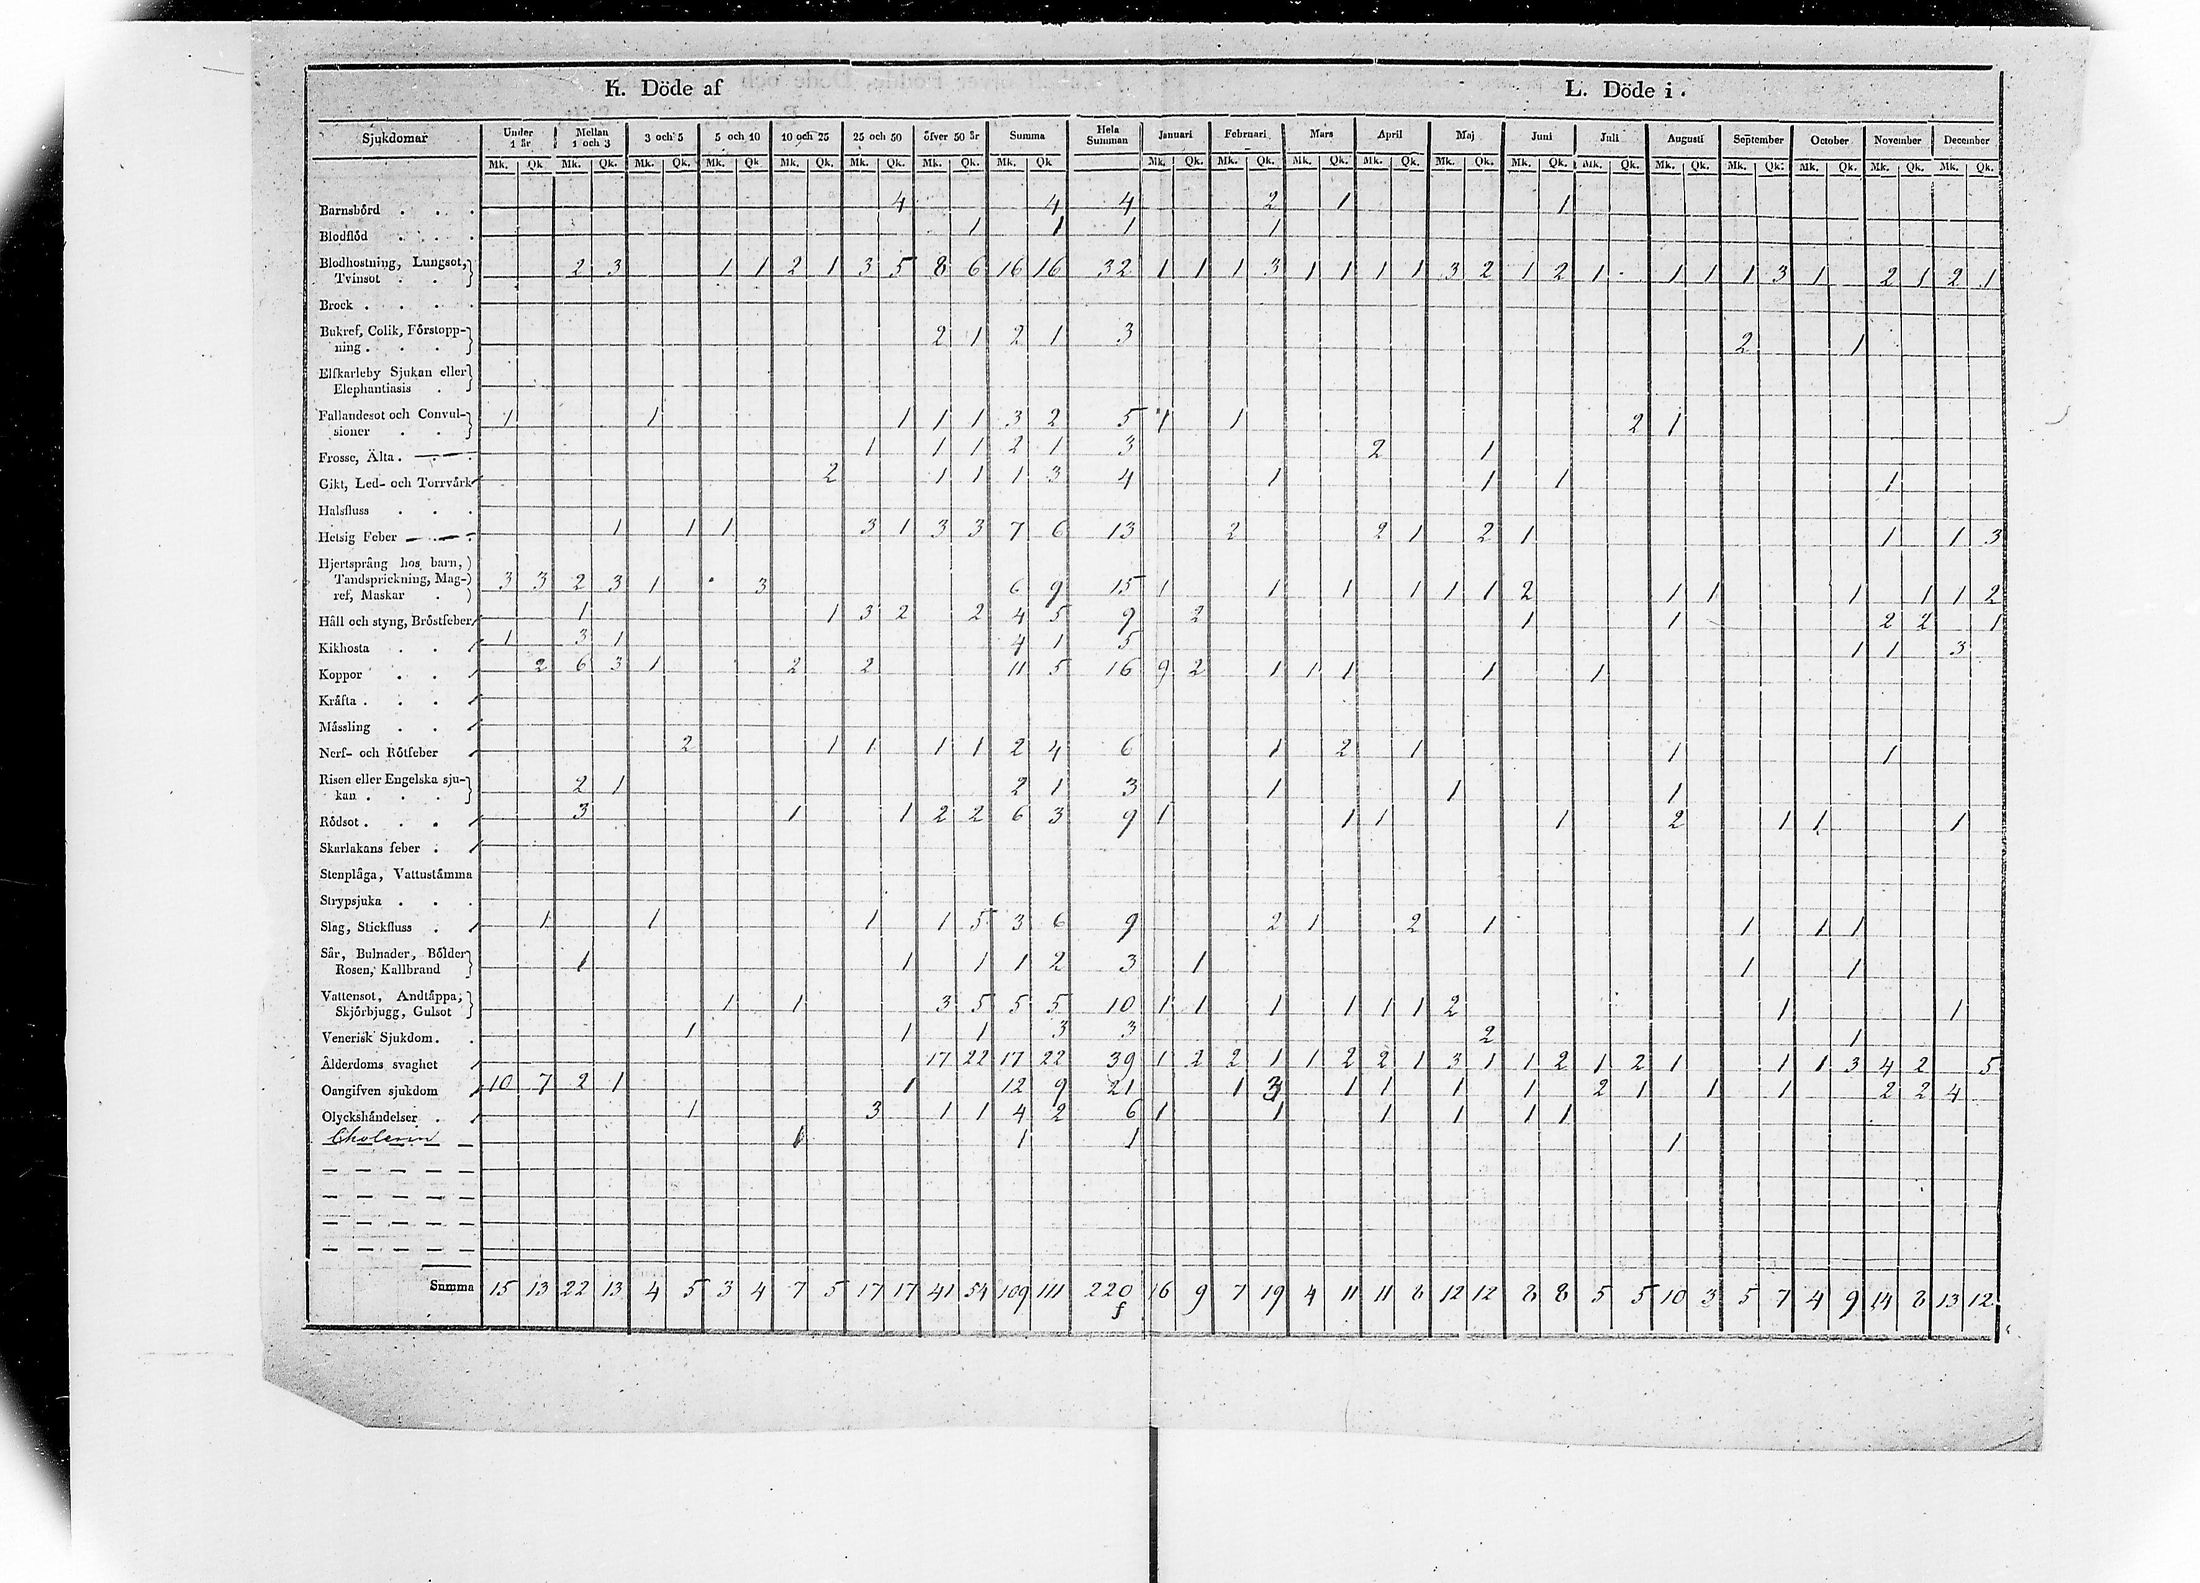 K. Döde af L. Döde i.
Sjukdomar Under 1 år Mellan 1 och 3 3 och 5 5 och 10 10 och 25 25 och 50 öfver 50 år Summa Hela Summan Januari Februari Mars April Maj Juni Juli Augusti September October November December
Mk. Qk. Mk. Qk. Mk. Qk. Mk. Qk Mk. Qk. Mk. Qk. Mk. Qk. Mk. Qk Mk. Qk. Mk. Qk. Mk. Qk. Mk. Qk. Mk. Qk. Mk. Qk. Mk. Qk. Mk. Qk. Mk. Qk. Mk. Qk. Mk. Qk. Mk. Qk.
Barnsbörd . . . 4 4 4 2 1 1
Blodflöd . . . 1 1 1 1
Blodhostning, Lungsot,
Tvinsot . . 2 3 1 1 2 1 3 5 8 6 16 16 32 1 1 1 3 1 1 1 1 3 2 1 2 1 1 1 1 3 1 2 1 2 1
Brock . . . .
Bukref, Colik, Förstopp-
ning . . . 2 1 2 1 3 2 1
Elfkarleby Sjukan eller
Elephantiasis .
Fallandesot och Convul-
sioner . . 1 1 1 1 1 3 2 5 1 1 2 1
Frosse, Älta . 1 1 1 2 1 3 2 1
Gikt, Led- och Torrvärk 2 1 1 1 3 4 1 1 1 1
Halsfluss . . .
Hetsig Feber 1 1 1 3 1 3 3 7 6 13 2 2 1 2 1 1 1 3
Hjertsprång hos barn,
Tandsprickning, Mag-
ref, Maskar . 3 3 2 3 1 3 6 9 15 1 1 1 1 1 1 2 1 1 1 1 1 2
Håll och styng, Bröstfeber 1 1 3 2 2 4 5 9 2 1 1 2 2 1
Kikhosta . . 1 3 1 4 1 5 1 1 3
Koppor . . 2 6 3 1 2 2 11 5 16 9 2 1 1 1 1 1
Kräfta . . .
Mässling . .
Nerf- och Rötfeber 2 1 1 1 1 2 4 6 1 2 1 1 1
Risen eller Engelska sju-
kan . . . 2 1 2 1 3 1 1 1
Rödsot . . . 3 1 1 2 2 6 3 9 1 1 1 1 2 1 1 1
Skarlakans feber .
Stenplåga, Vattustämma
Strypsjuka . . .
Slag, Stickfluss . 1 1 1 1 5 3 6 9 2 1 2 1 1 1 1
Sår, Bulnader, Bölder
Rosen, Kallbrand 1 1 1 1 2 3 1 1 1
Vattensot, Andtäppa,
Skjörbjugg, Gulsot 1 1 3 5 5 5 10 1 1 1 1 1 1 2 1 1
Venerisk Sjukdom . . 1 1 1 3 3 2 1
Ålderdoms svaghet 17 22 17 22 39 1 2 2 1 1 2 2 1 3 1 1 2 1 2 1 1 1 3 4 2 5
Oangifven sjukdom 10 7 2 1 1 12 9 21 1 3 1 1 1 1 2 1 1 1 2 2 4
Olyckshändelser . 1 3 1 1 4 2 6 1 1 1 1 1 1
Cholerin 1 1 1 1
Summa 15 13 22 13 4 5 3 4 7 5 17 17 41 54 109 111 220 16 9 7 19 4 11 11 8 12 12 8 8 5 5 10 3 5 7 4 9 14 8 13 12